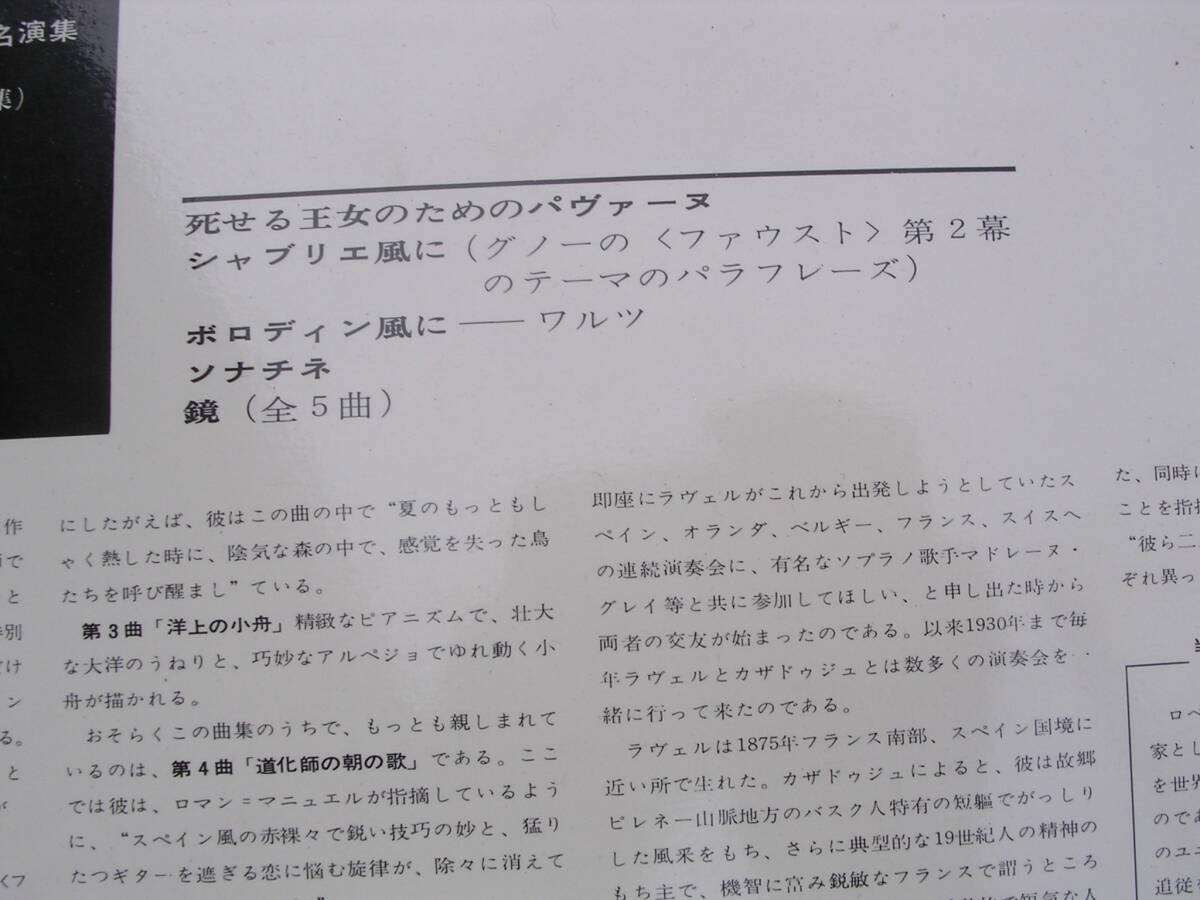 名演集
集)
死せる王女のためのパヴァーヌ
シャブリエ風に(グノーの〈ファウスト〉第2幕
のテーマのパラフレーズ)
ボロディン風に――ワルツ
ソナチネ
鏡(全5曲)
作
で
と
別
け
ン
る。
と
が
くフ
にしたがえば、彼はこの曲の中で“夏のもっともし
ゃく熱した時に、陰気な森の中で、感覚を失った鳥
たちを呼び醒まし”ている。
第3曲「洋上の小舟」精緻なピアニズムで、壮大
な大洋のうねりと、巧妙なアルペジョでゆれ動く小
舟が描かれる。
おそらくこの曲集のうちで、もっとも親しまれて
いるのは、第4曲「道化師の朝の歌」である。ここ
では彼は、ロマン=マニュエルが指摘しているよう
に、“スペイン風の赤裸々で鋭い技巧の妙と、猛り
たつギターを遮ぎる恋に悩む旋律が、除々に消えて
即座にラヴェルがこれから出発しようとしていたス
ペイン、オランダ、ベルギー、フランス、スイスへ
の連続演奏会に、有名なソプラノ歌手マドレーヌ・
グレイ等と共に参加してほしい、と申し出た時から
両者の交友が始まったのである。以来1930年まで毎
年ラヴェルとカザドゥジュとは数多くの演奏会を一
緒に行って来たのである。
ラヴェルは1875年フランス南部、スペイン国境に
近い所で生れた。カザドゥジュによると、彼は故郷
ピレネー山脈地方のバスク人特有の短軀でがっしり
した風采をもち、さらに典型的な19世紀人の精神の
もち主で、機智に富み鋭敏なフランスで謂うところ
で短気な人
た、同時に
ことを指摘
“彼ら二
ぞれ異っ
ロベ
家とし
を世界
のであ
のユニ
追従を